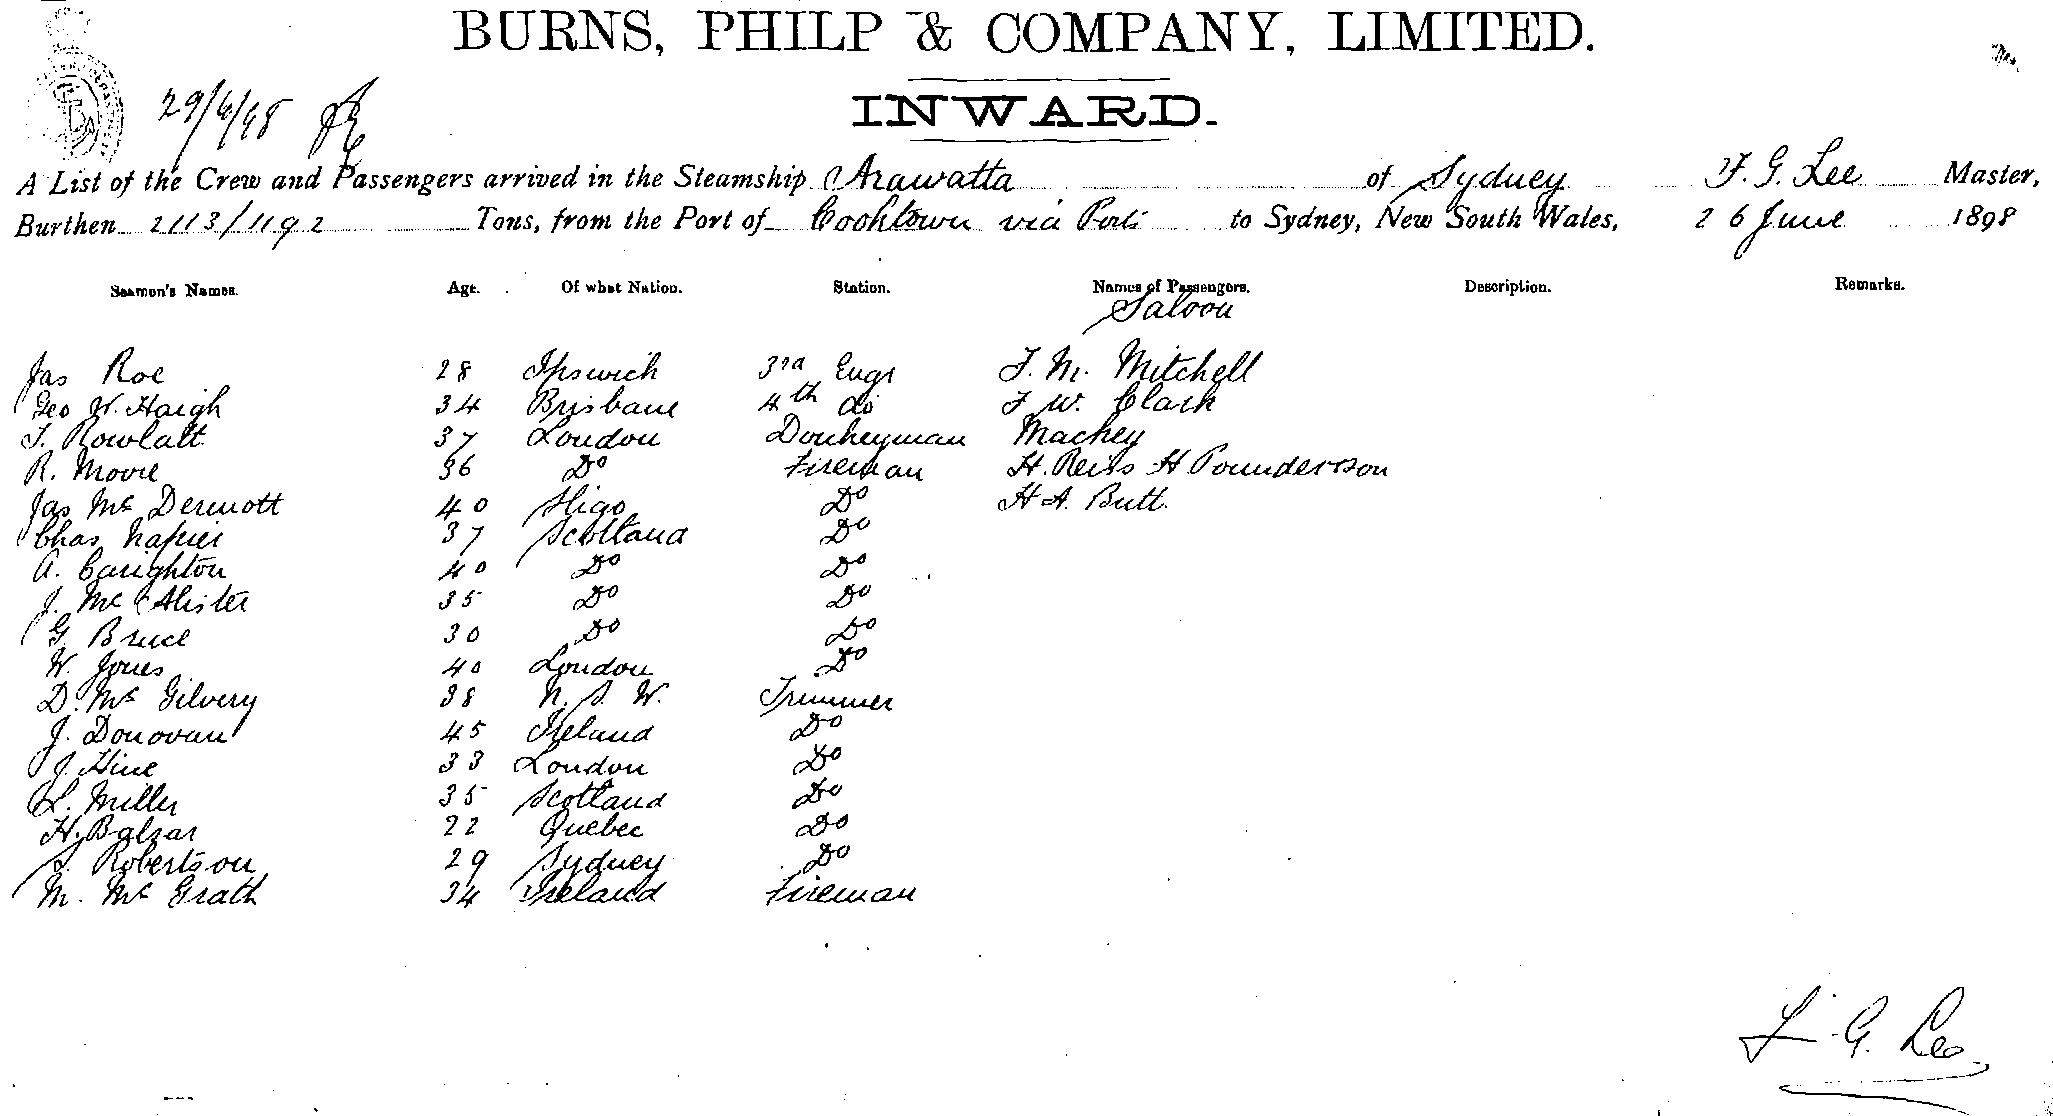 BURNS, PHILP & COMPANY, LIMITED.
INWARD.
29/6/98
A List of the Crew and Passengers arrived in the Steamship Arawatta of Sydney F. G. Lee Master,
Burthen 2113/1192 Tons, from the Port of Cooktown via Ports to Sydney, New South Wales, 26 June 1898
Seamen's Names. Age. Of what Nation. Station. Names of Passengers. Description. Remarks.
Saloon
Jas Roe 28 Ipswich 3rd Engr F. M. Mitchell
Geo W. Haigh 34 Brisbane 4th do F W. Clark
T. Rowlatt 37 London Donkeyman Mackey
R. Moore 36 Do Fireman H. Reiss H Pounderson
Jas McDermott 40 Sligo Do H A. Butt.
Chas Napier 37 Scotland Do
A. Caughton 40 Do Do
J. McAlister 35 Do Do
G Bruce 30 Do Do
W. Jones 40 London Do
D. McGilvery 38 N. S. W. Trimmer
J. Donovan 45 Ireland Do
J. Hine 33 London Do
L. Miller 35 Scotland Do
H. Balzar 22 Quebec Do
S. Robertson 29 Sydney Do
M. McGrath 34 Ireland Fireman
F. G. Lee